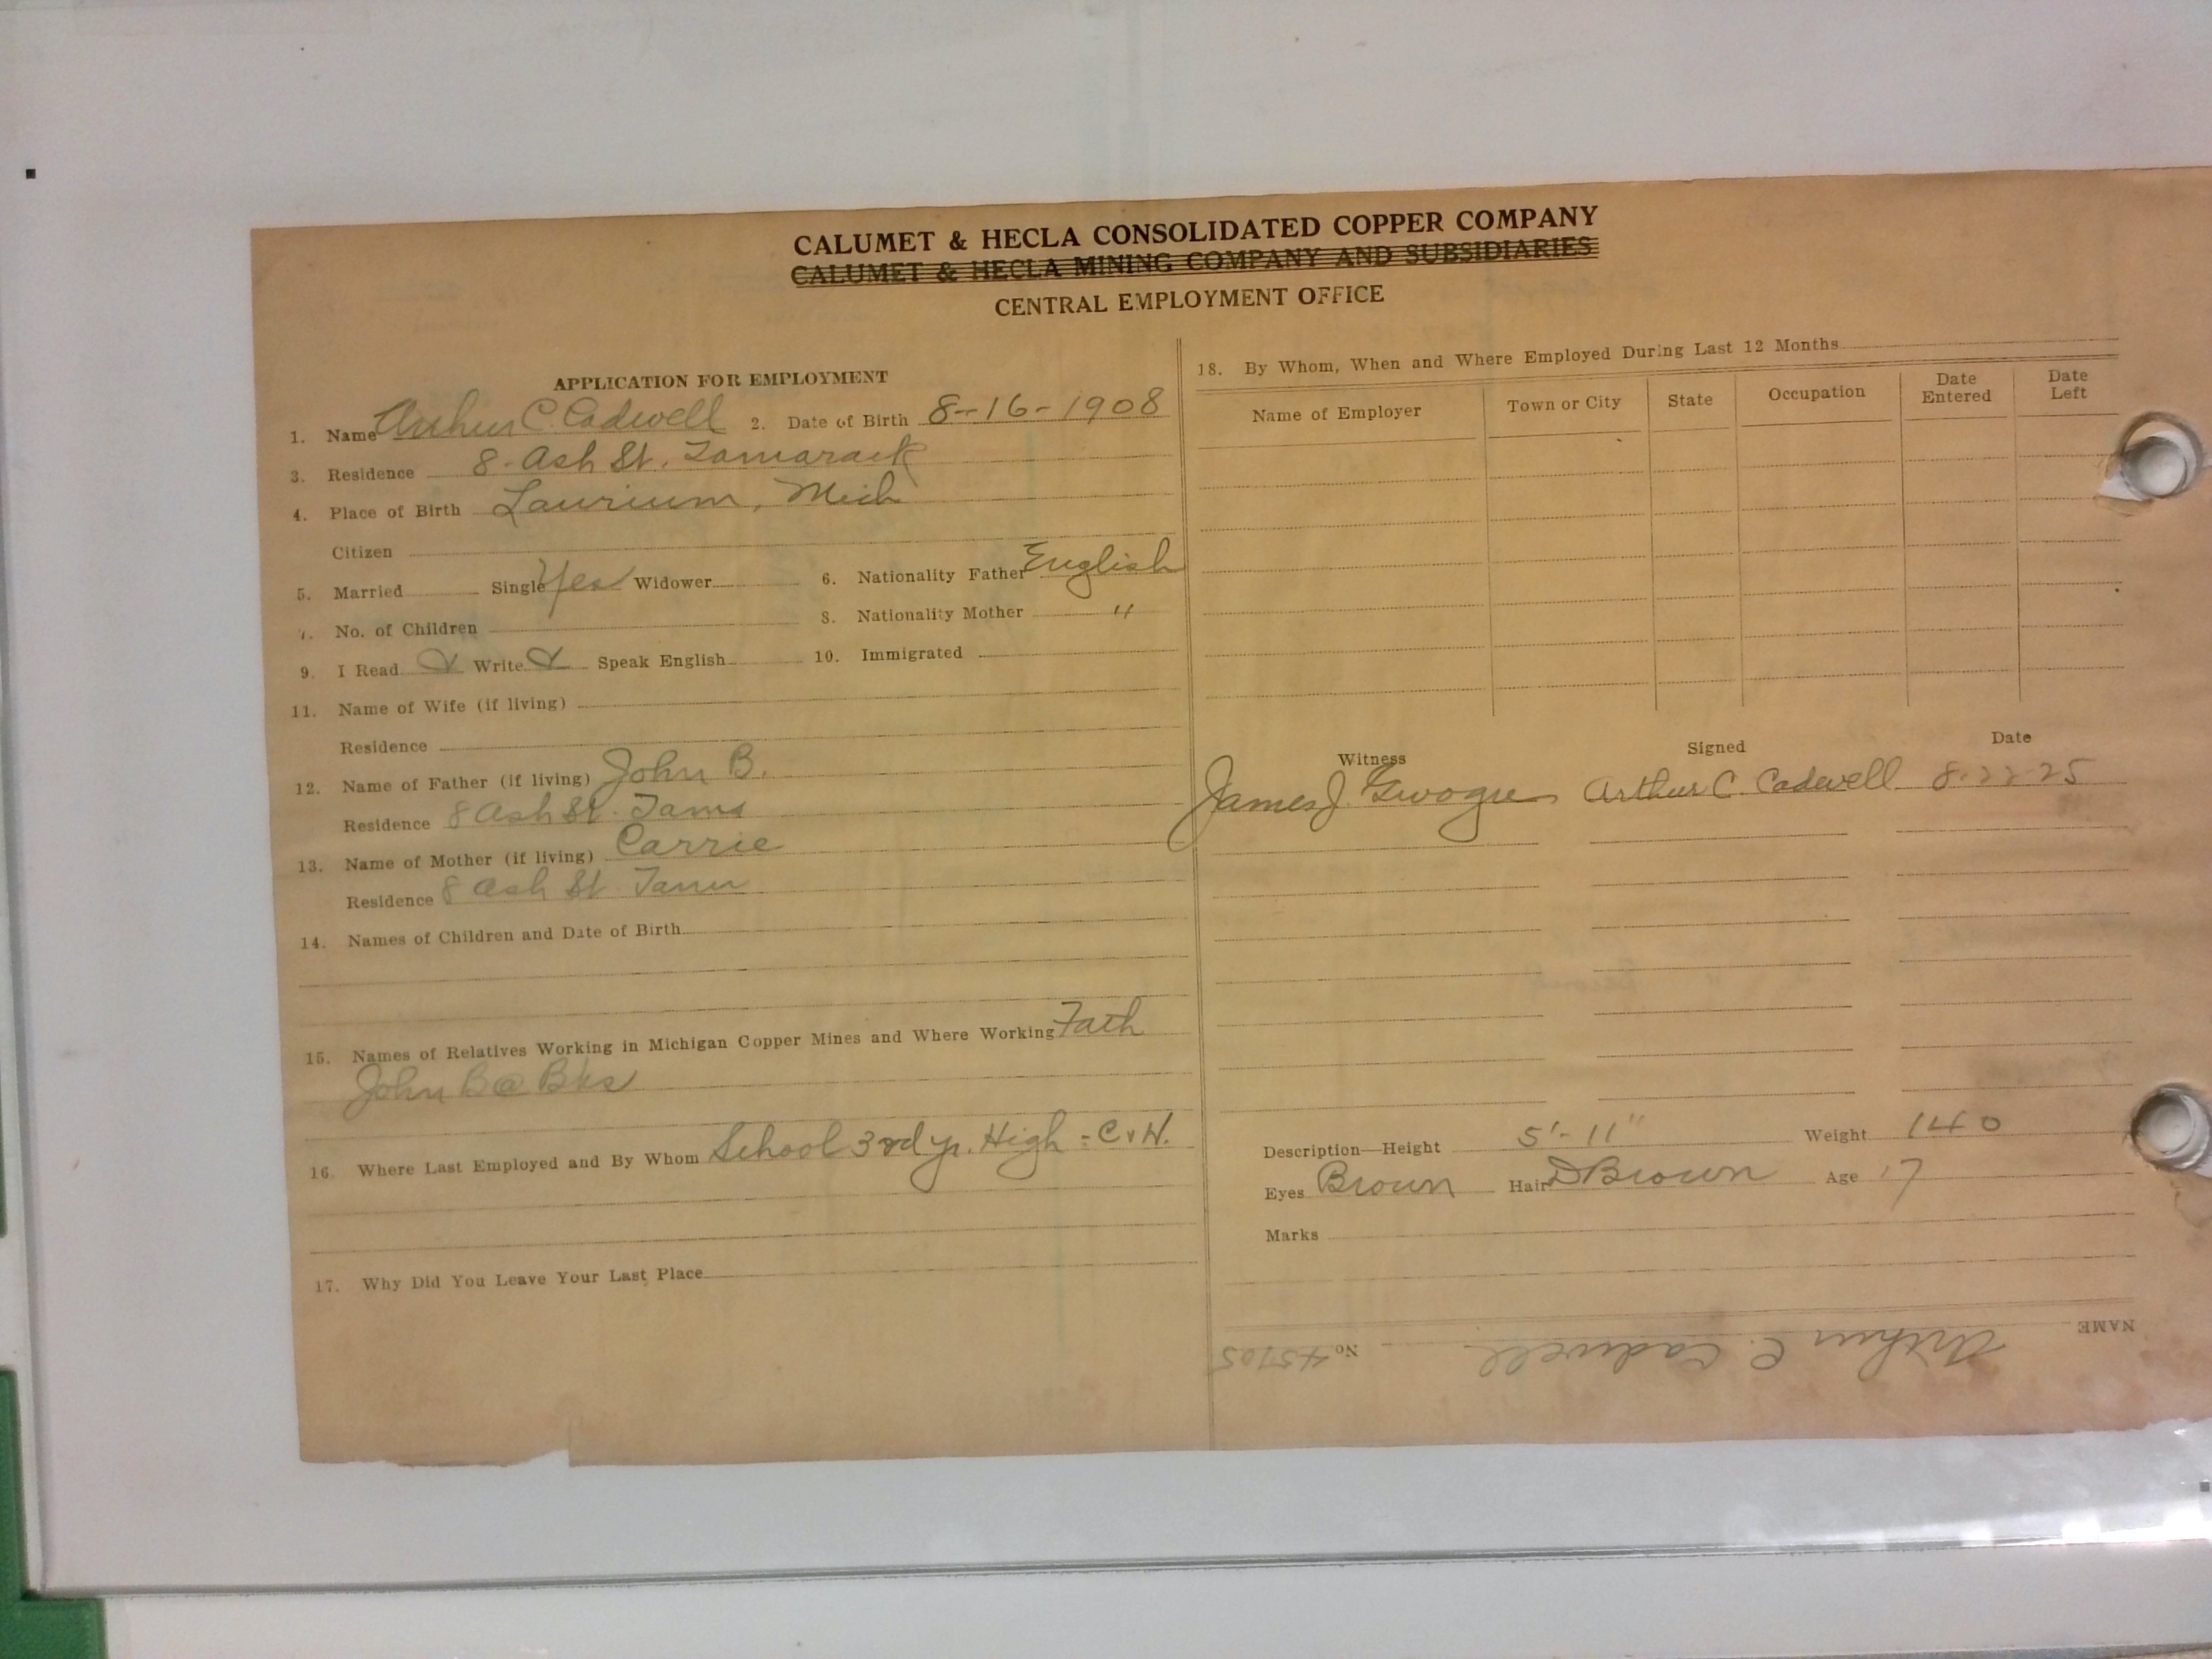 CALUMET & HECLA CONSOLIDATED COPPER COMPANY
CALUMET & HECLA MINING COMPANY AND SUBSIDIARIES
CENTRAL EMPLOYMENT OFFICE
APPLICATION FOR EMPLOYMENT
1. Name Arthur C. Cadwell 2. Date of Birth 8-16-1908
3. Residence 8-Ash St. Tamarack
4. Place of Birth Laurium, Mich
Citizen
5. Married Single Yes Widower 6. Nationality Father English
7. No. of Children 8. Nationality Mother "
9. I Read Write Speak English 10. Immigrated
11. Name of Wife (if living)
Residence
12. Name of Father (if living) John B.
Residence 8 Ash St.
13. Name of Mother (if living) Carrie
Residence 8 Ash St
14. Names of Children and Date of Birth
15. Names of Relatives Working in Michigan Copper Mines and Where Working Fath
John B @
16. Where Last Employed and By Whom School 3rd yr. High
17. Why Did You Leave Your Last Place
18. By Whom, When and Where Employed During Last 12 Months
Name of Employer Town or City State Occupation Date Entered Date Left
Witness Signed Date
James J. Arthur C. Cadwell 8-22-25
Description—Height 5'-11" Weight 140
Eyes Brown Hair D Brown Age 17
Marks
NAME Arthur C. Cadwell No. 45705